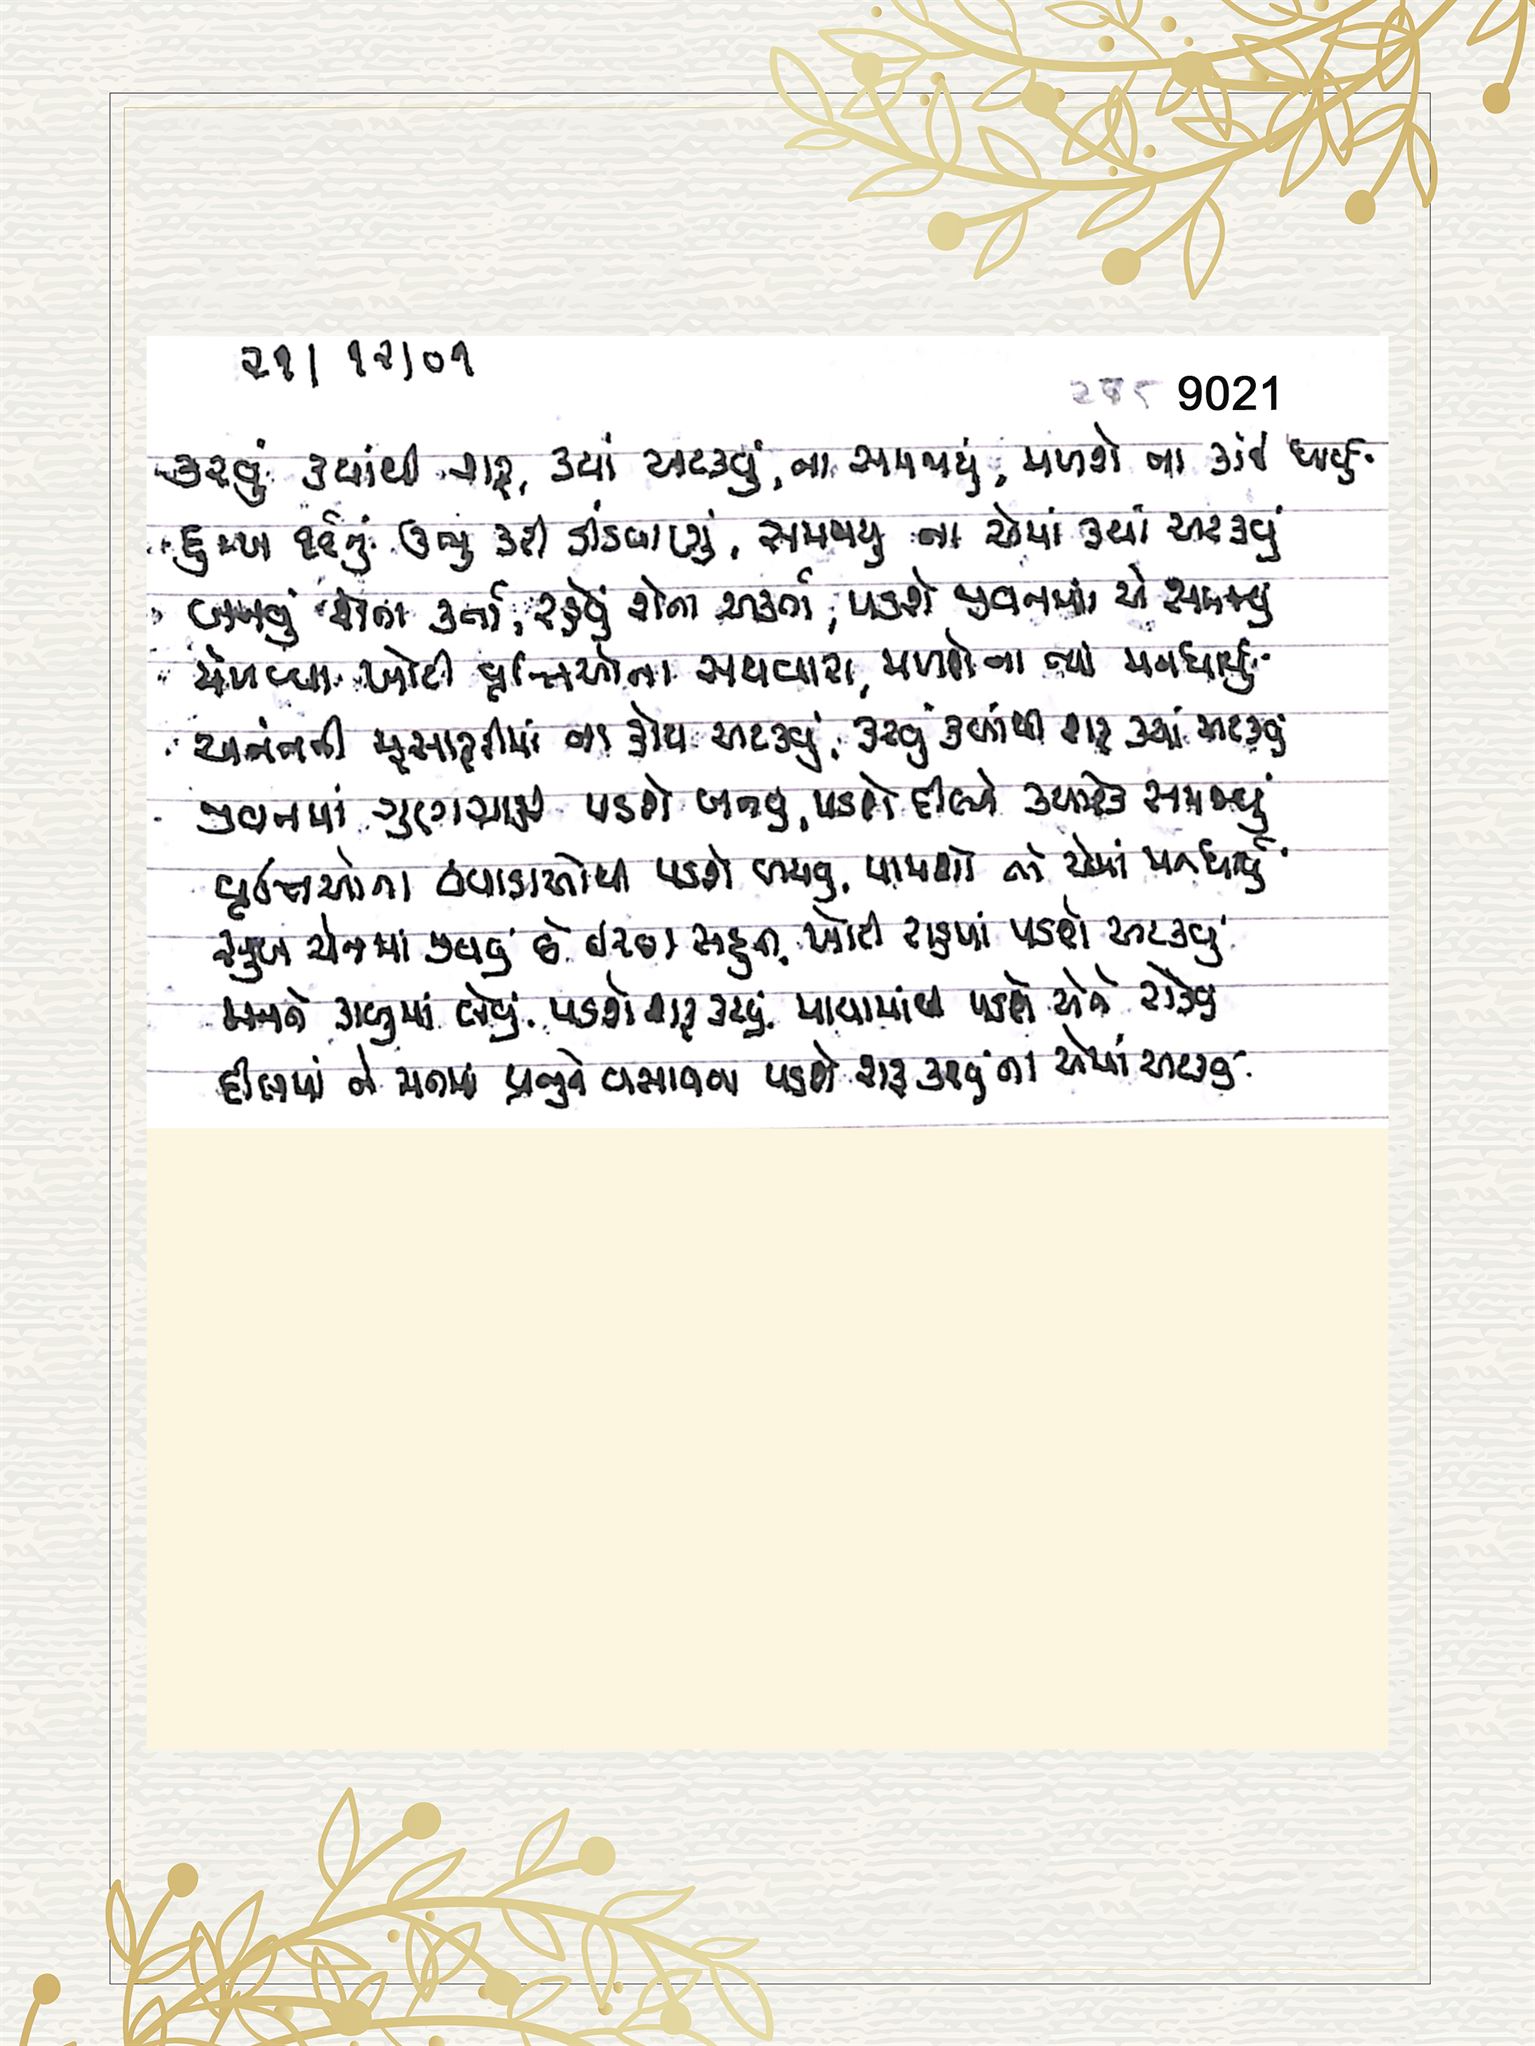 ૨૧/૧૨/૦૧
9021
કરવું ક્યાંથી શરૂ, ક્યાં અટકવું, ના સમજાયું, મળશે ના કાંઈ ધાર્યું
દુઃખ દર્દનું ઉભું કરી ડીંડવાણું, સમજાયું ના એમાં ક્યાં અટકવું
બનવું શેના કર્તા, રહેવું શેના અકર્તા, પડશે જીવનમાં એ સમજવું
મેળવ્યા ખોટી વૃત્તિઓના સથવારા, મળશે ના ત્યાં મનધાર્યું
અનંતની મુસાફરીમાં ના હોય અટકવું, કરવું ક્યાંથી શરૂ ક્યાં અટકવું
જીવનમાં ગુણગ્રાહી પડશે બનવું, પડશે દીલને સમજવું
વૃત્તિઓના હવાડાઓથી પડશે બચવું, પામશો ને એમાં મનધાર્યું
સુખ ચેનમાં જીવવું છે ઈચ્છા સહુની, ખોટી રાહમાં પડશે અટકવું
મનને કાબુમાં લેવું, પડશે શરૂ કરવું, માયામાંથી પડશે એને રોકવું
દીલમાં ને મનમાં પ્રભુને વસાવવા પડશે શરૂ કરવું ના એમાં અટકવું